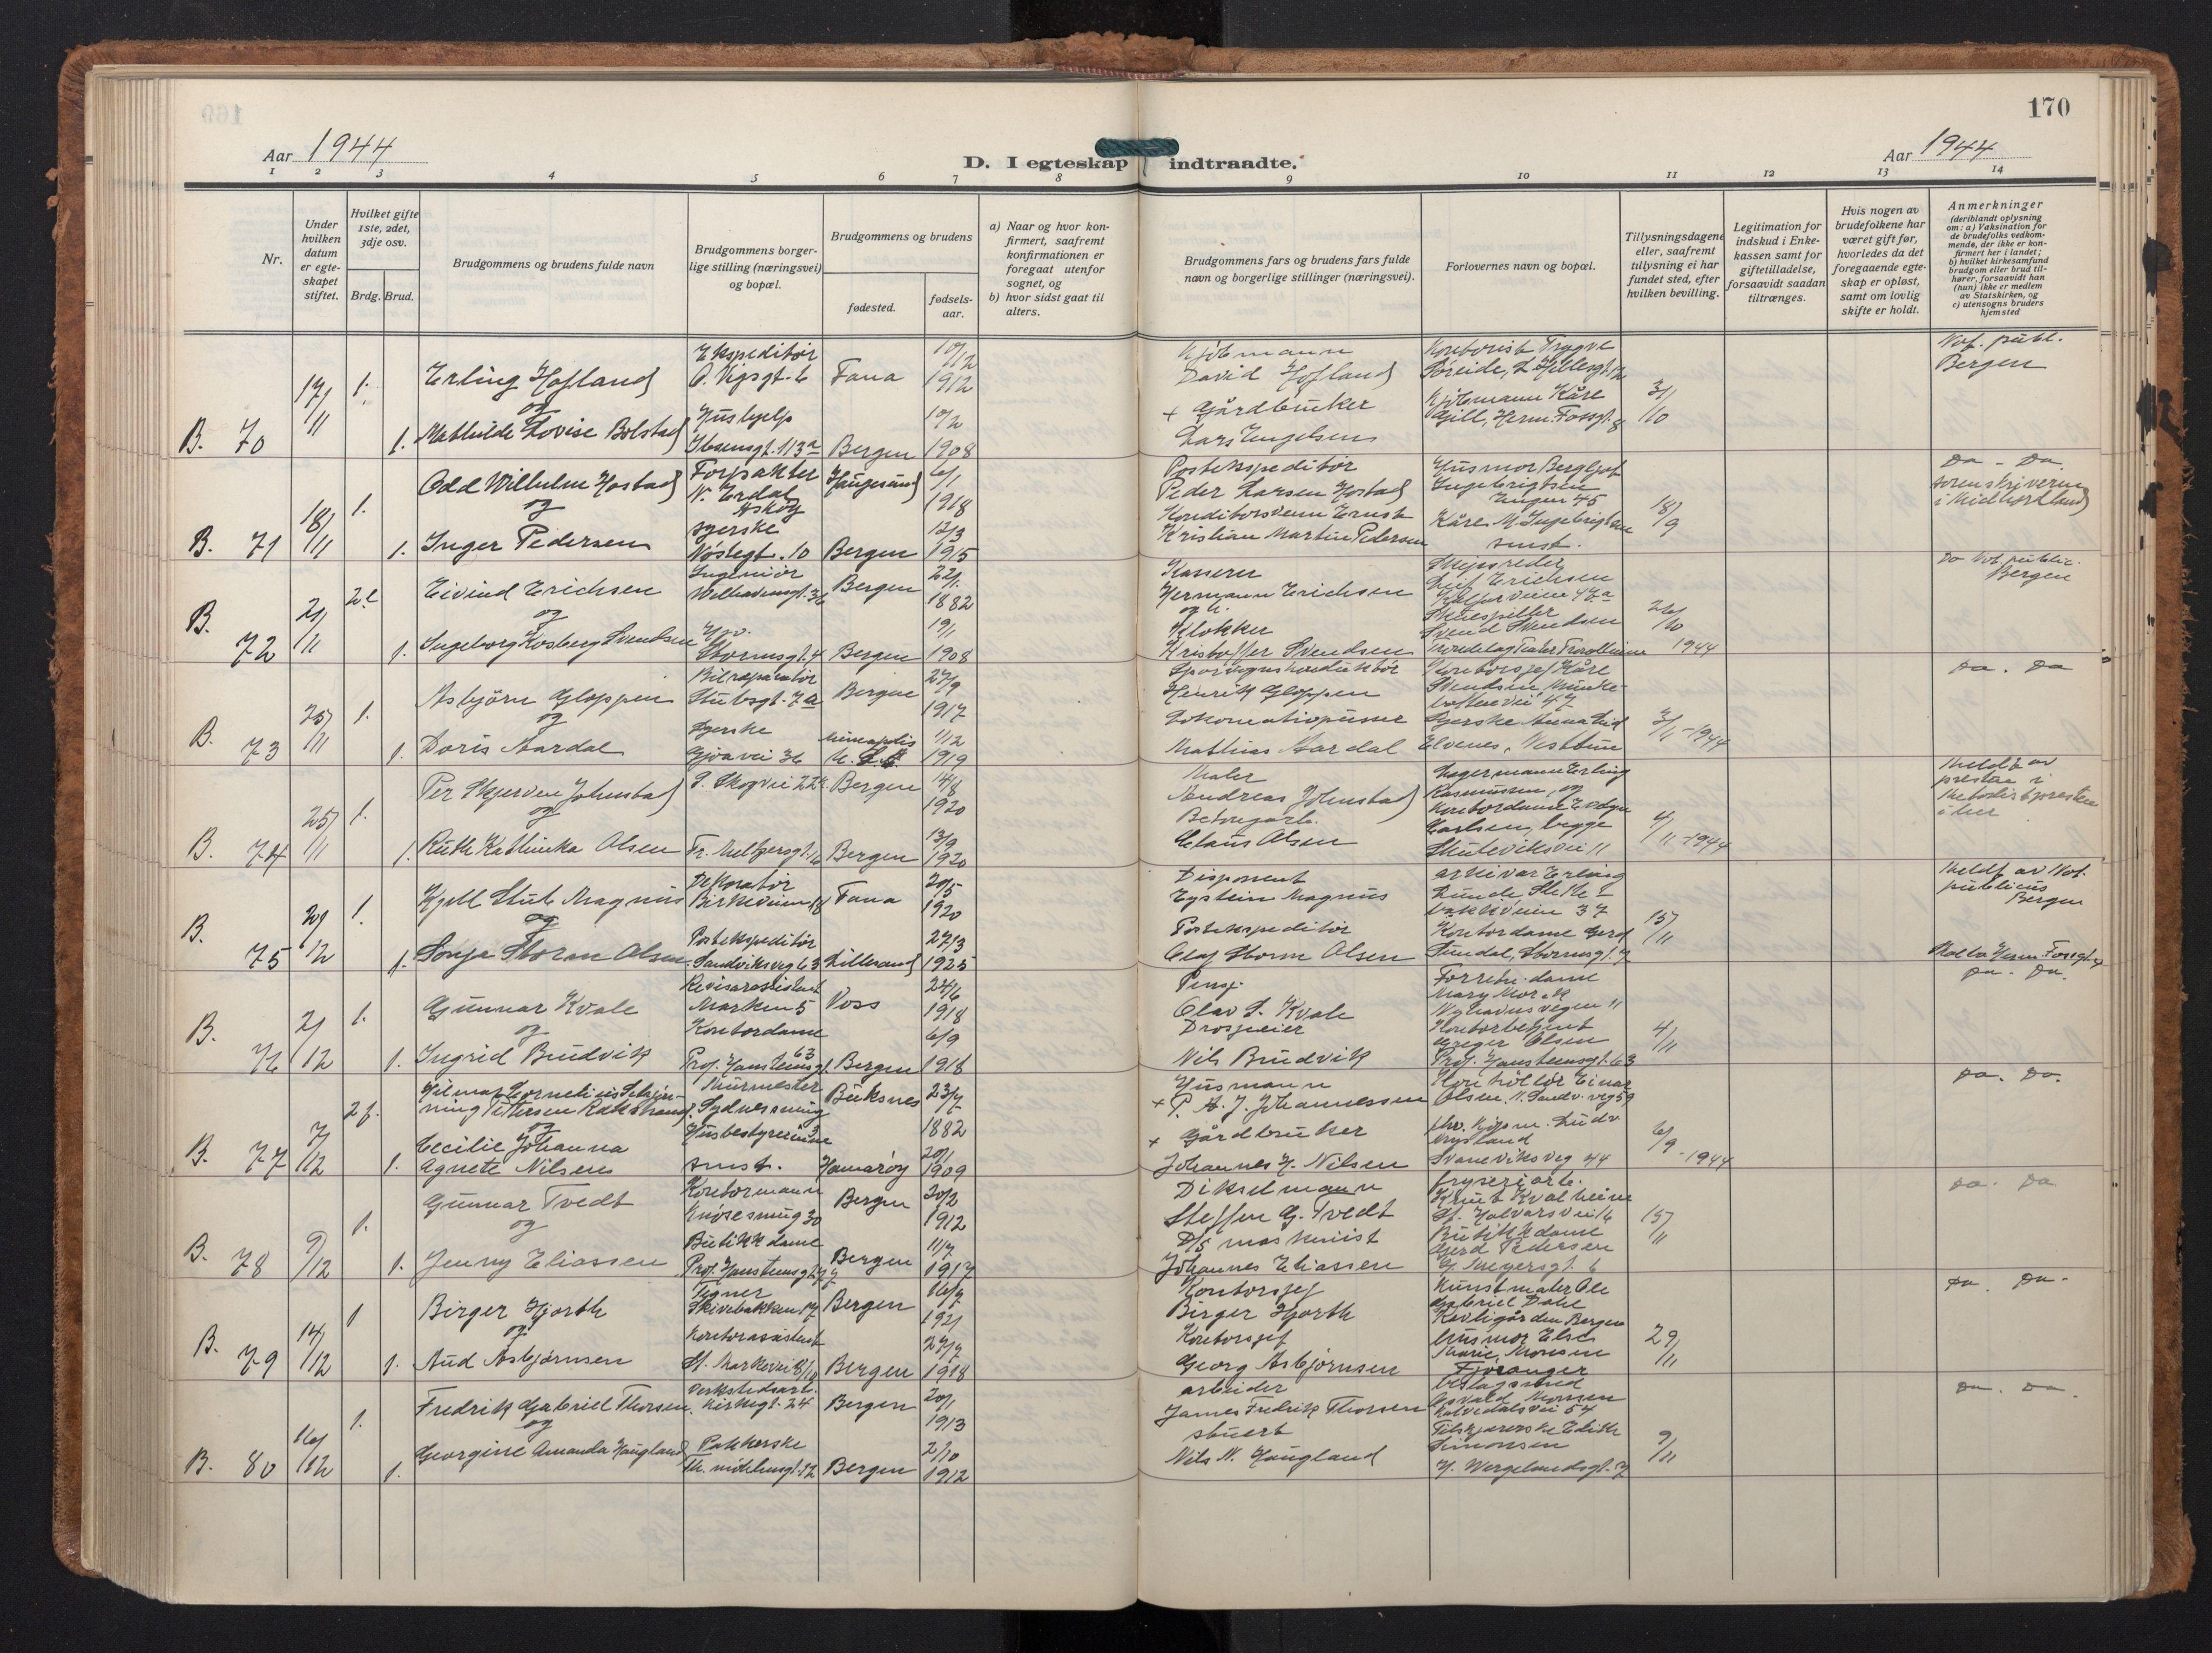 170
Aar 1944
D. I egteskap indtraadte.
Aar 1944
1 2 3 4 5 6 7 8 9 10 11 12 13 14
Nr.
Under hvilken datum er egteskapet stiftet.
Hvilket gifte 1ste, 2det, 3dje osv.
Brdg. Brud.
Brudgommens og brudens fulde navn
Brudgommens borgerlige stilling (næringsvei) og bopæl.
Brudgommens og brudens
fødested.
fødselsaar.
a) Naar og hvor konfirmert, saafremt konfirmationen er foregaat utenfor sognet, og
b) hvor sidst gaat til alters.
Brudgommens fars og brudens fars fulde navn og borgerlige stillinger (næringsvei).
Forlovernes navn og bopæl.
Tillysningsdagene eller, saafremt tillysning ei har fundet sted, efter hvilken bevilling.
Legitimation for indskud i Enkekassen samt for giftetilladelse, forsaavidt saadan tiltrænges.
Hvis nogen av brudefolkene har været gift før, hvorledes da det foregaaende egteskap er opløst, samt om lovlig skifte er holdt.
Anmerkninger
(deriblandt oplysning om: a) Vaksination for de brudefolks vedkommende, der ikke er konfirmert her i landet; b) hvilket kirkesamfund brudgom eller brud tilhører, forsaavidt han (hun) ikke er medlem av Statskirken, og c) utensogns bruders hjemsted
B. 70 17/11 1. Erling Hofland Ekspeditør Fana 10/12 1912
og
1. Mathilde Lovise Bolstad Hushjelp Ibsensgt. 113a Bergen 10/2 1908
Kjøbmann David Hofland
+ Gårdbruker Lars Engelsen
Kontorist Trygve Søreide
Kjøbmann Kåre Gjill, Herm. Fossgt. 8
3/10
Not. publ. Bergen
B. 71 18/11 1. Odd Wilhelm Hostad Forpakter N. Erdal Askøy Haugesund 6/1 1918
og
1. Inger Pedersen syerske Nøstegt. 10 Bergen 12/3 1915
Postekspeditør Peder Larsen Hostad
Konditorsvenn Ernst Kristian Martin Pedersen
Husmor Bergljot Ingebrigtsen Engen 45
Kåre M. Ingebrigtsen smst.
18/9
Do - Do. sorenskriveren i Midhordland
B. 72 2/11 2. Eivind Erichsen Ingeniør Welhavensgt. 36 Bergen 22/1 1882
og
1. Ingeborg Kosberg Svendsen Stormsgt. 4 Bergen 19/1 1908
Kasserer Hermann Erichsen
og
Klokker Kristoffer Svendsen
Skipsreder Leif Erichsen Kalfarveien 47a
Skuespiller Svend Svendsen
26/10 1944
Do Not. public. Bergen
B. 73 25/11 1. Asbjørn Gloppen Bilreparatør Stubsgt. 7a Bergen 27/9 1917
og
1. Doris Aardal Syerske Gjøavei 36 1/12 1919
Sporvognskonduktør Henrik Gloppen
Lokomotivpusser Mathias Aardal
Kontorsjef Kåre Svendsen
Syerske Anna Lid Elvenes, Nesttun
1944
Do. Do
B. 74 25/11 1. Per Skjerven Johnstad P. Skogvei 22 Bergen 14/8 1920
og
1. Ruth Kathinka Olsen Fr. Meltzersgt. 16 Bergen 13/9 1920
Maler Andreas Johnstad
Betongarb. Claus Olsen
Lagermann Erling Rasmussen og Kontordame
Carlsen, begge Skuteviksvei 11
4/11 - 1944
Meldt av presten i
B. 75 2/12 1. Kjell Stub Magnus Dekoratør Birkeveien 18 Fana 20/5 1920
og
1. Sonja Storm Olsen Postekspeditør Sandviksveg 63 Lillesand 27/3 1925
Disponent Eystein Magnus
Postekspeditør Olaf Storm Olsen
arkivar Erling Lunde
Kontordame Gerd Sundal, Stormsgt. 7
15/11
Meldt av Not. publicus Bergen
B. 76 2/12 1. Gunnar Kvale Revisorassistent Marken 5 Voss 24/6 1918
og
1. Ingrid Budvik Kontordame Prof. Hansteensgt. 63 Bergen 6/9 1918
Pensj. Olav S. Kvale
Drosjeeier Nils Budvik
Forretn. dame Mary Mork
Kontorbetjent Greger Olsen Prof. Hansteensgt. 63
4/11
Do. Do.
B. 77 7/12 2. Pettersen Rakstrand Murmester Sydnessmug Buksnes 23/7 1882
og
1. Cecilie Johanna Agnete Nilsen Husbestyrerinne smst. Hamarøy 20/1 1909
Husmann
+ P. A. J. Johannessen
+ Gårdbruker Johannes H. Nilsen
Kontrollør Einar Olsen, N. Sandv. veg 59
Svaneviksveg 44
6/9 - 1944
Do. Do.
B. 78 9/12 1. Gunnar Tvedt Kontormann Knøsesmug 30 Bergen 20/2 1912
og
1. Jenny Eliassen Butikkdame Prof. Hansteensgt. Bergen 11/7 1917
Dikselmann Steffen G. Tvedt
D/S maskinist Johannes Eliassen
fryseriarb. Knut Kvalheim St. Halvarsvei 16
Butikkdame Gerd Pedersen
15/11
Do. Do
B. 79 14/12 1 Birger Hjorth Tegner Skivebakken 17 Bergen 16/7 1921
og
1. Aud Asbjørnsen Kontorassistent St. Markevei 8/10 Bergen 27/7 1918
Kontorsjef Birger Hjorth
Kontorsjef Georg Asbjørnsen
Kunstmaler Ole Gabriel Dahl Kavligården Bergen
husmor Else Marie Monsen Fjøsanger
29/11
Do. Do.
B. 80 16/12 1. Fredrik Gabriel Thorsen Verkstedsarb. Kirkegt. 24 Bergen 20/1 1913
og
1. Georgine Amanda Haugland Pakkerske Bergen 2/10 1912
arbeider James Fredrik Thorsen
stuert Nils N. Haugland
Osvald Monsen Kalvedalsvei 54
Tilskjærerske Edith Simonsen H. Wergelandsgt. 7
9/11
Do. Do.